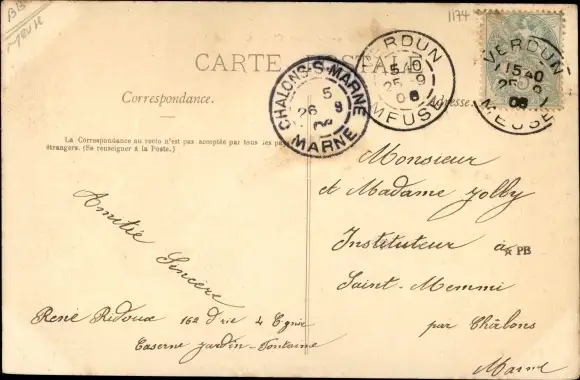 BB
Meuse
1174
CARTE POSTALE
Correspondance.
Adresse
La Correspondance au recto n'est pas acceptée par tous les pays
étrangers. (Se renseigner à la Poste.)
CHALONS-S-MARNE
5
26 9
MARNE
VERDUN
15 40
25 9
06
MEUSE
VERDUN
15 40
25 9
06
MEUSE
Amitié Sincère
René Ridoux 162 d'rie 4
Caserne Jardin-Fontaine
Monsieur
et Madame Jolly
Instituteur à
PB
Saint-Memmi
par Châlons
Marne